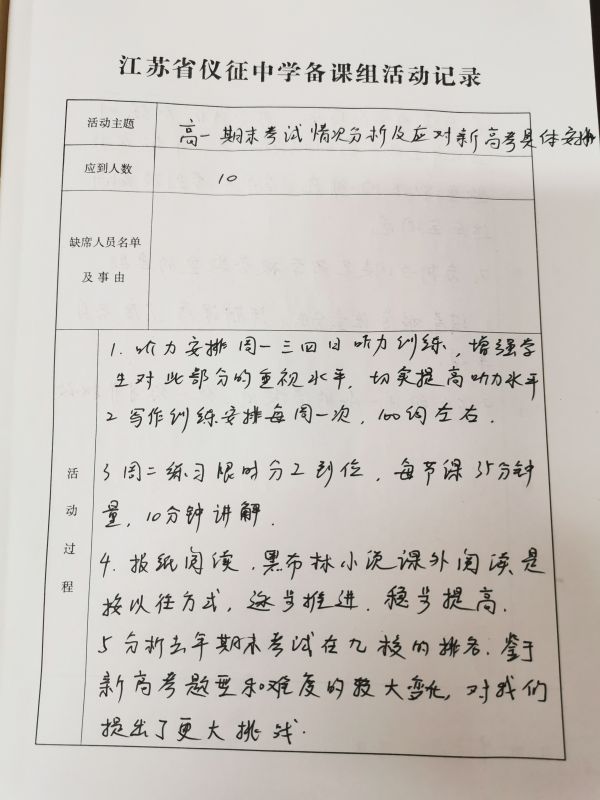 江苏省仪征中学备课组活动记录
活动主题
高一期末考试情况分析及应对新高考具体安排
应到人数
10
缺席人员名单
及事由
活动过程
1. 听力安排周一三四日听力训练，增强学
生对此部分的重视水平，切实提高听力水平
2 写作训练安排每周一次，100词左右.
3 周二练习限时分工到位，每节课35分钟
量，10分钟讲解.
4. 报纸阅读，黑布林小说课外阅读是
按以往方式，逐步推进，稳步提高.
5 分析去年期末考试在九校的排名，鉴于
新高考题型和难度的较大变化，对我们
提出了更大挑战.